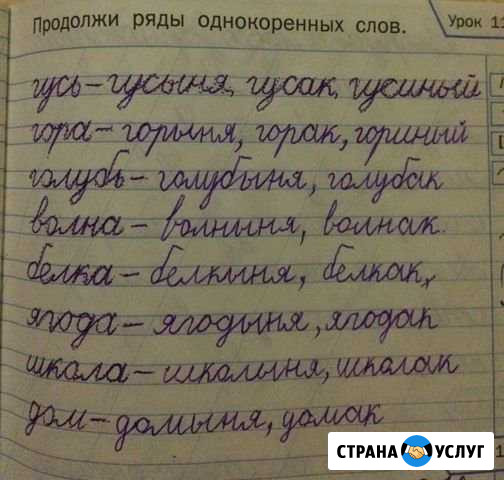 Продолжи ряды однокоренных слов.
Урок 11
гусь – гусыня, гусак, гусиный
гора – горыня, горак, гориный
голубь – голубыня, голубак
волна – волныня, волнак.
белка – белкыня, белкак,
ягода – ягодыня, ягодак
школа – школыня, школак
дом – домыня, домак
СТРАНА УСЛУГ